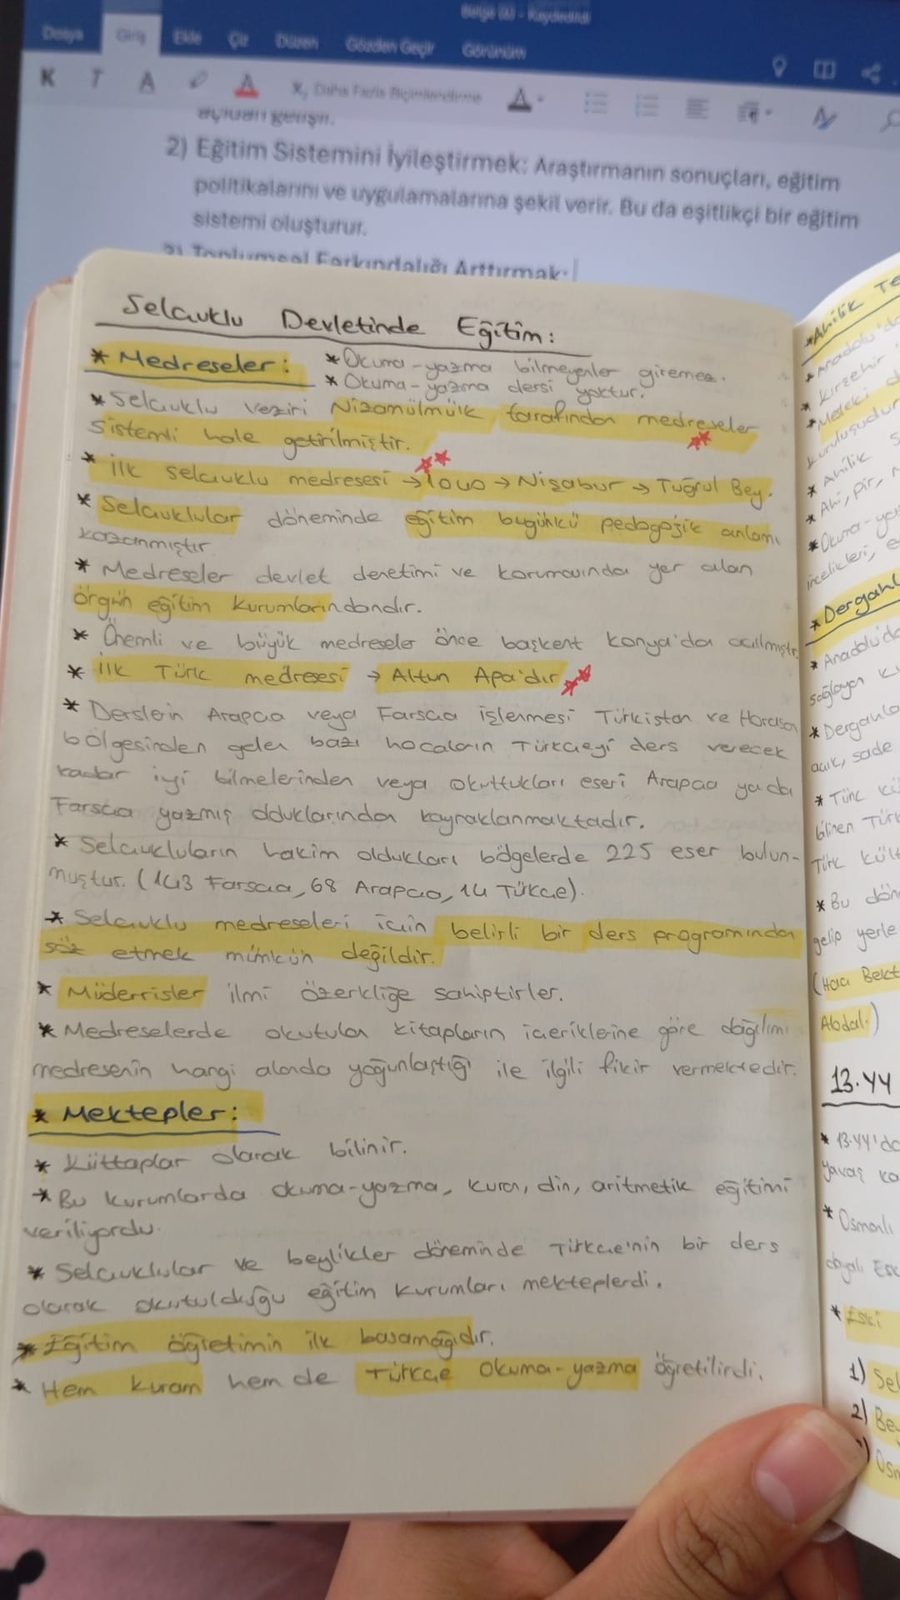 Belge (X) - Kaydedildi
Dosya Giriş Ekle Çiz Düzen Gözden Geçir Görünüm
K T A A Daha Fazla Biçimlendirme A
açıdan gelişir.
2) Eğitim Sistemini İyileştirmek: Araştırmanın sonuçları, eğitim
politikalarını ve uygulamalarına şekil verir. Bu da eşitlikçi bir eğitim
sistemi oluşturur.
3) Toplumsal Farkındalığı Arttırmak:
Selçuklu Devletinde Eğitim:
* Medreseler: * Okuma-yazma bilmeyenler giremez.
* Okuma-yazma dersi yoktur.
* Selçuklu veziri Nizamülmülk tarafından medreseler
sistemli hale getirilmiştir.
* İlk selçuklu medresesi → 1040 → Nişabur → Tuğrul Bey.
* Selçuklular döneminde eğitim bugünkü pedagojik anlamı
kazanmıştır
* Medreseler devlet denetimi ve korumasında yer alan
örgün eğitim kurumlarındandır.
* Önemli ve büyük medreseler önce başkent Konya'da açılmıştır
* İlk Türk medresesi → Altun Apa'dır
* Derslein Arapça veya Farsça işlenmesi Türkistan ve Horasan
bölgesinden gelen bazı hocaların Türkçeyi ders verecek
kadar iyi bilmelerinden veya okuttukları eseri Arapça ya da
Farsça yazmış olduklarından kaynaklanmaktadır.
* Selçukluların hakim oldukları bölgelerde 225 eser bulun-
muştur. (143 Farsça, 68 Arapça, 14 Türkçe).
* Selçuklu medreseleri için belirli bir ders programından
söz etmek mümkün değildir.
* Müderrisler ilmi özerkliğe sahiptirler.
* Medreselerde okutulan kitapların içeriklerine göre dağılımı
medresenin hangi alanda yoğunlaştığı ile ilgili fikir vermektedir.
* Mektepler:
* Küttaplar olarak bilinir.
* Bu kurumlarda okuma-yazma, kuran, din, aritmetik eğitimi
veriliyordu.
* Selçuklular ve beylikler döneminde Türkçe'nin bir ders
olarak okutulduğu eğitim kurumları mekteplerdi.
* Eğitim öğretimin ilk basamağıdır.
* Hem kuran hem de Türkçe okuma-yazma öğretilirdi.
* Ahilik Te
* Anadolu'da
* Kırşehir
* Mesleki
kuruluşudur
* Ahilik
* Ahi, pir,
* Okuma-yaz
incelikleri,
* Dergahl
* Anadolu'da
sağlayan
* Dergahla
açık, sade
* Türk kü
bilinen Türk
Türk kült
* Bu dön
gelip yerle
(Hacı Bekt
Abdal.)
13.yy
* 13.yy'da
yavaş
* Osmanlı
dayalı
* Eski
1) Sel
2) Be
Osm